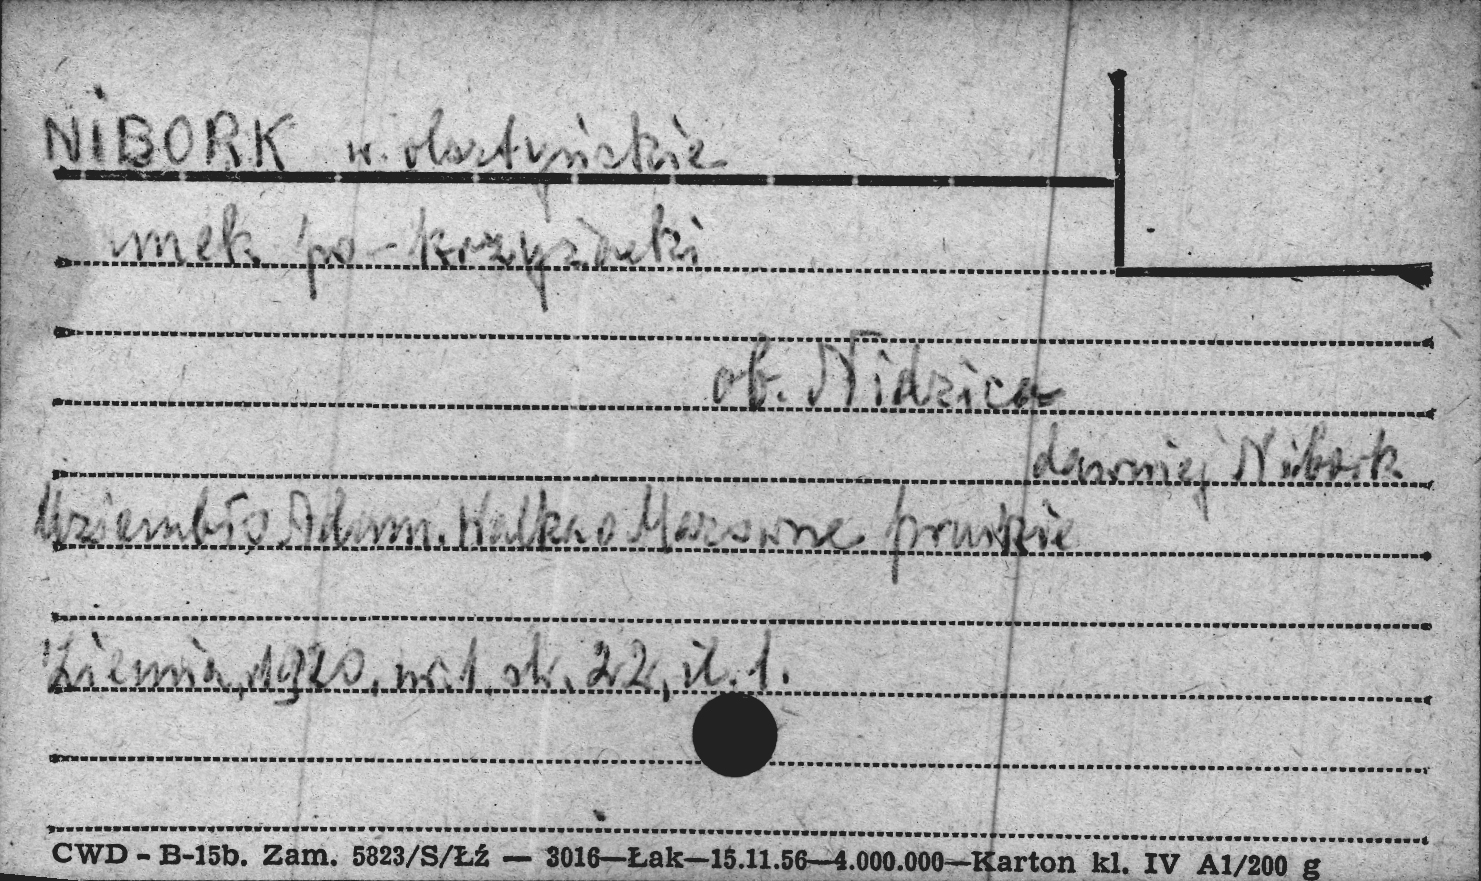 NIBORK w. olsztyńskie
zamek po-krzyżacki
ob. Nidzica
dawniej Nibork
Uziembło Adam. Walka o Mazowsze pruskie
Ziemia, 1920, nr. 1, str. 22, il. 1.
CWD - B-15b. Zam. 5823/S/Łź — 3016—Łak—15.11.56—4.000.000—Karton kl. IV A1/200 g